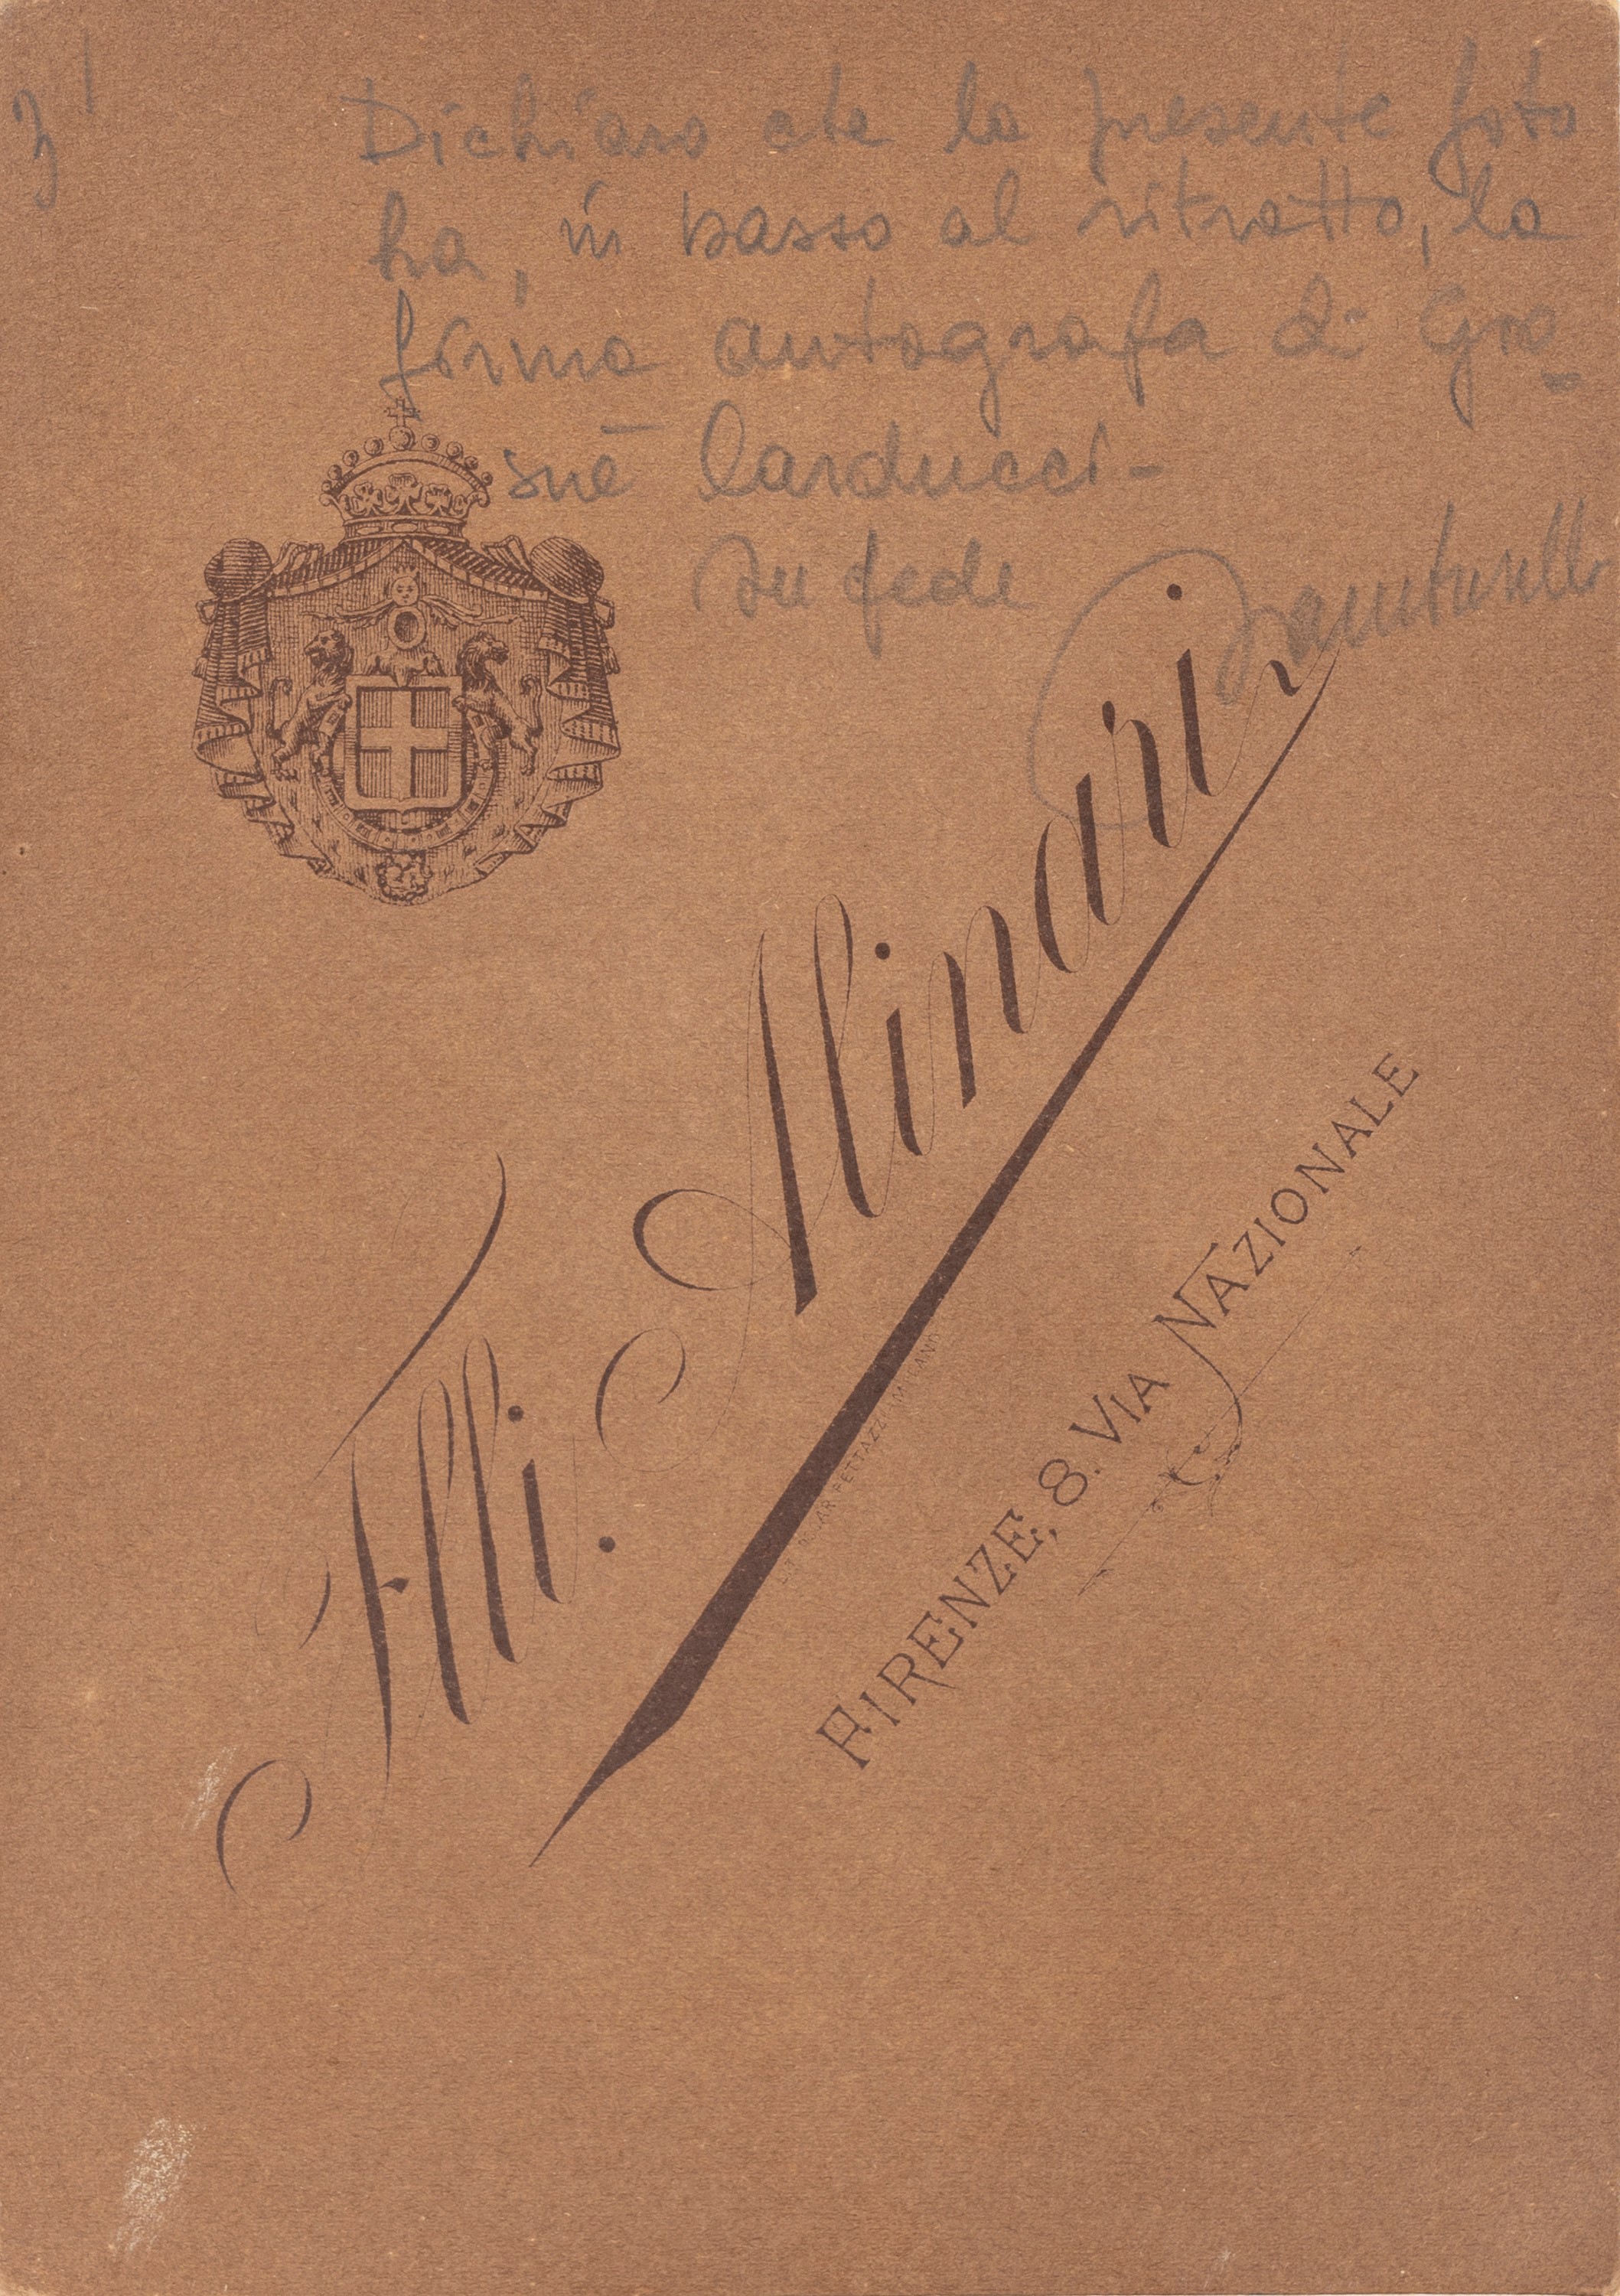 Dichiaro che la presente foto
ha, in basso al ritratto, la
firma autografa di Gio-
suè Carducci-
In fede
Flli. Alinari
FIRENZE, 8. VIA NAZIONALE